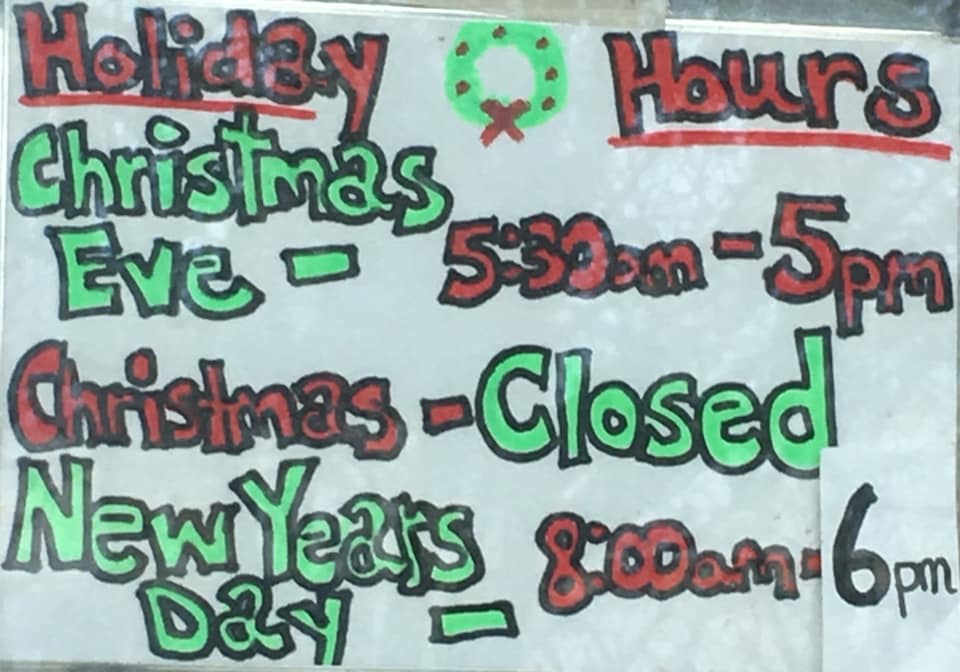 Holiday Hours
Christmas
Eve - 5:30am - 5pm
Christmas - Closed
New Years
Day - 8:00am - 6pm